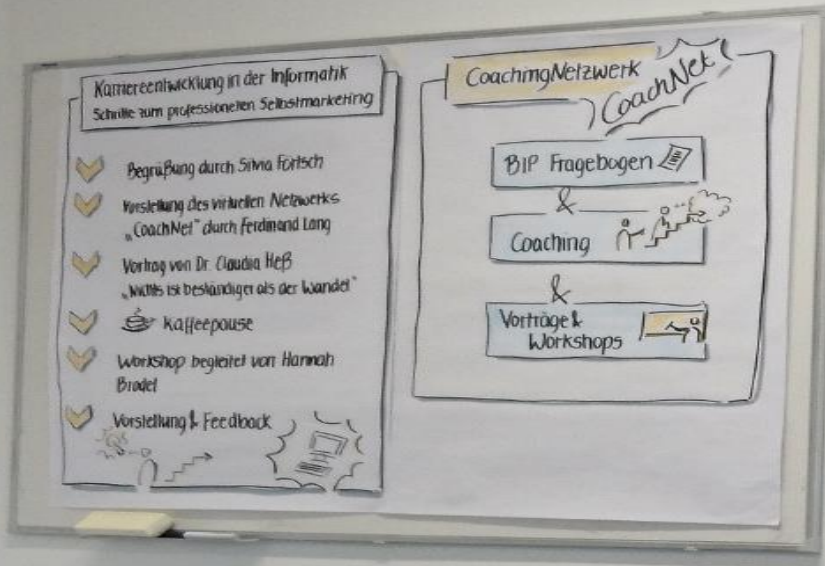 Karriereentwicklung in der Informatik
Schritte zum professionellen Selbstmarketing
Begrüßung durch Silvia Förtsch
Vorstellung des virtuellen Netzwerks
„CoachNet" durch Ferdinand Lang
Vortrag von Dr. Claudia Heß
„Nichts ist beständiger als der Wandel"
Kaffeepause
Workshop begleitet von Hannah
Bradel
Vorstellung & Feedback
CoachingNetzwerk
CoachNet!
BIP Fragebogen
&
Coaching
&
Vorträge &
Workshops